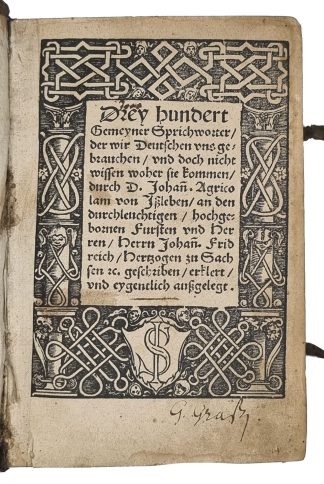 Drey hundert
Gemeyner Sprichworter/
der wir Deutschen vns ge-
brauchen/ vnd doch nicht
wissen woher sie kommen/
durch D. Johañ. Agrico
lam von Jßleben/ an den
durchleuchtigen/ hochge-
bornen Fursten vnd Her
ren/ Herrn Johañ. Frid
reich/ Hertzogen zu Sach
sen ꝛc. geschriben/ erklert/
vnd eygentlich außgelegt.